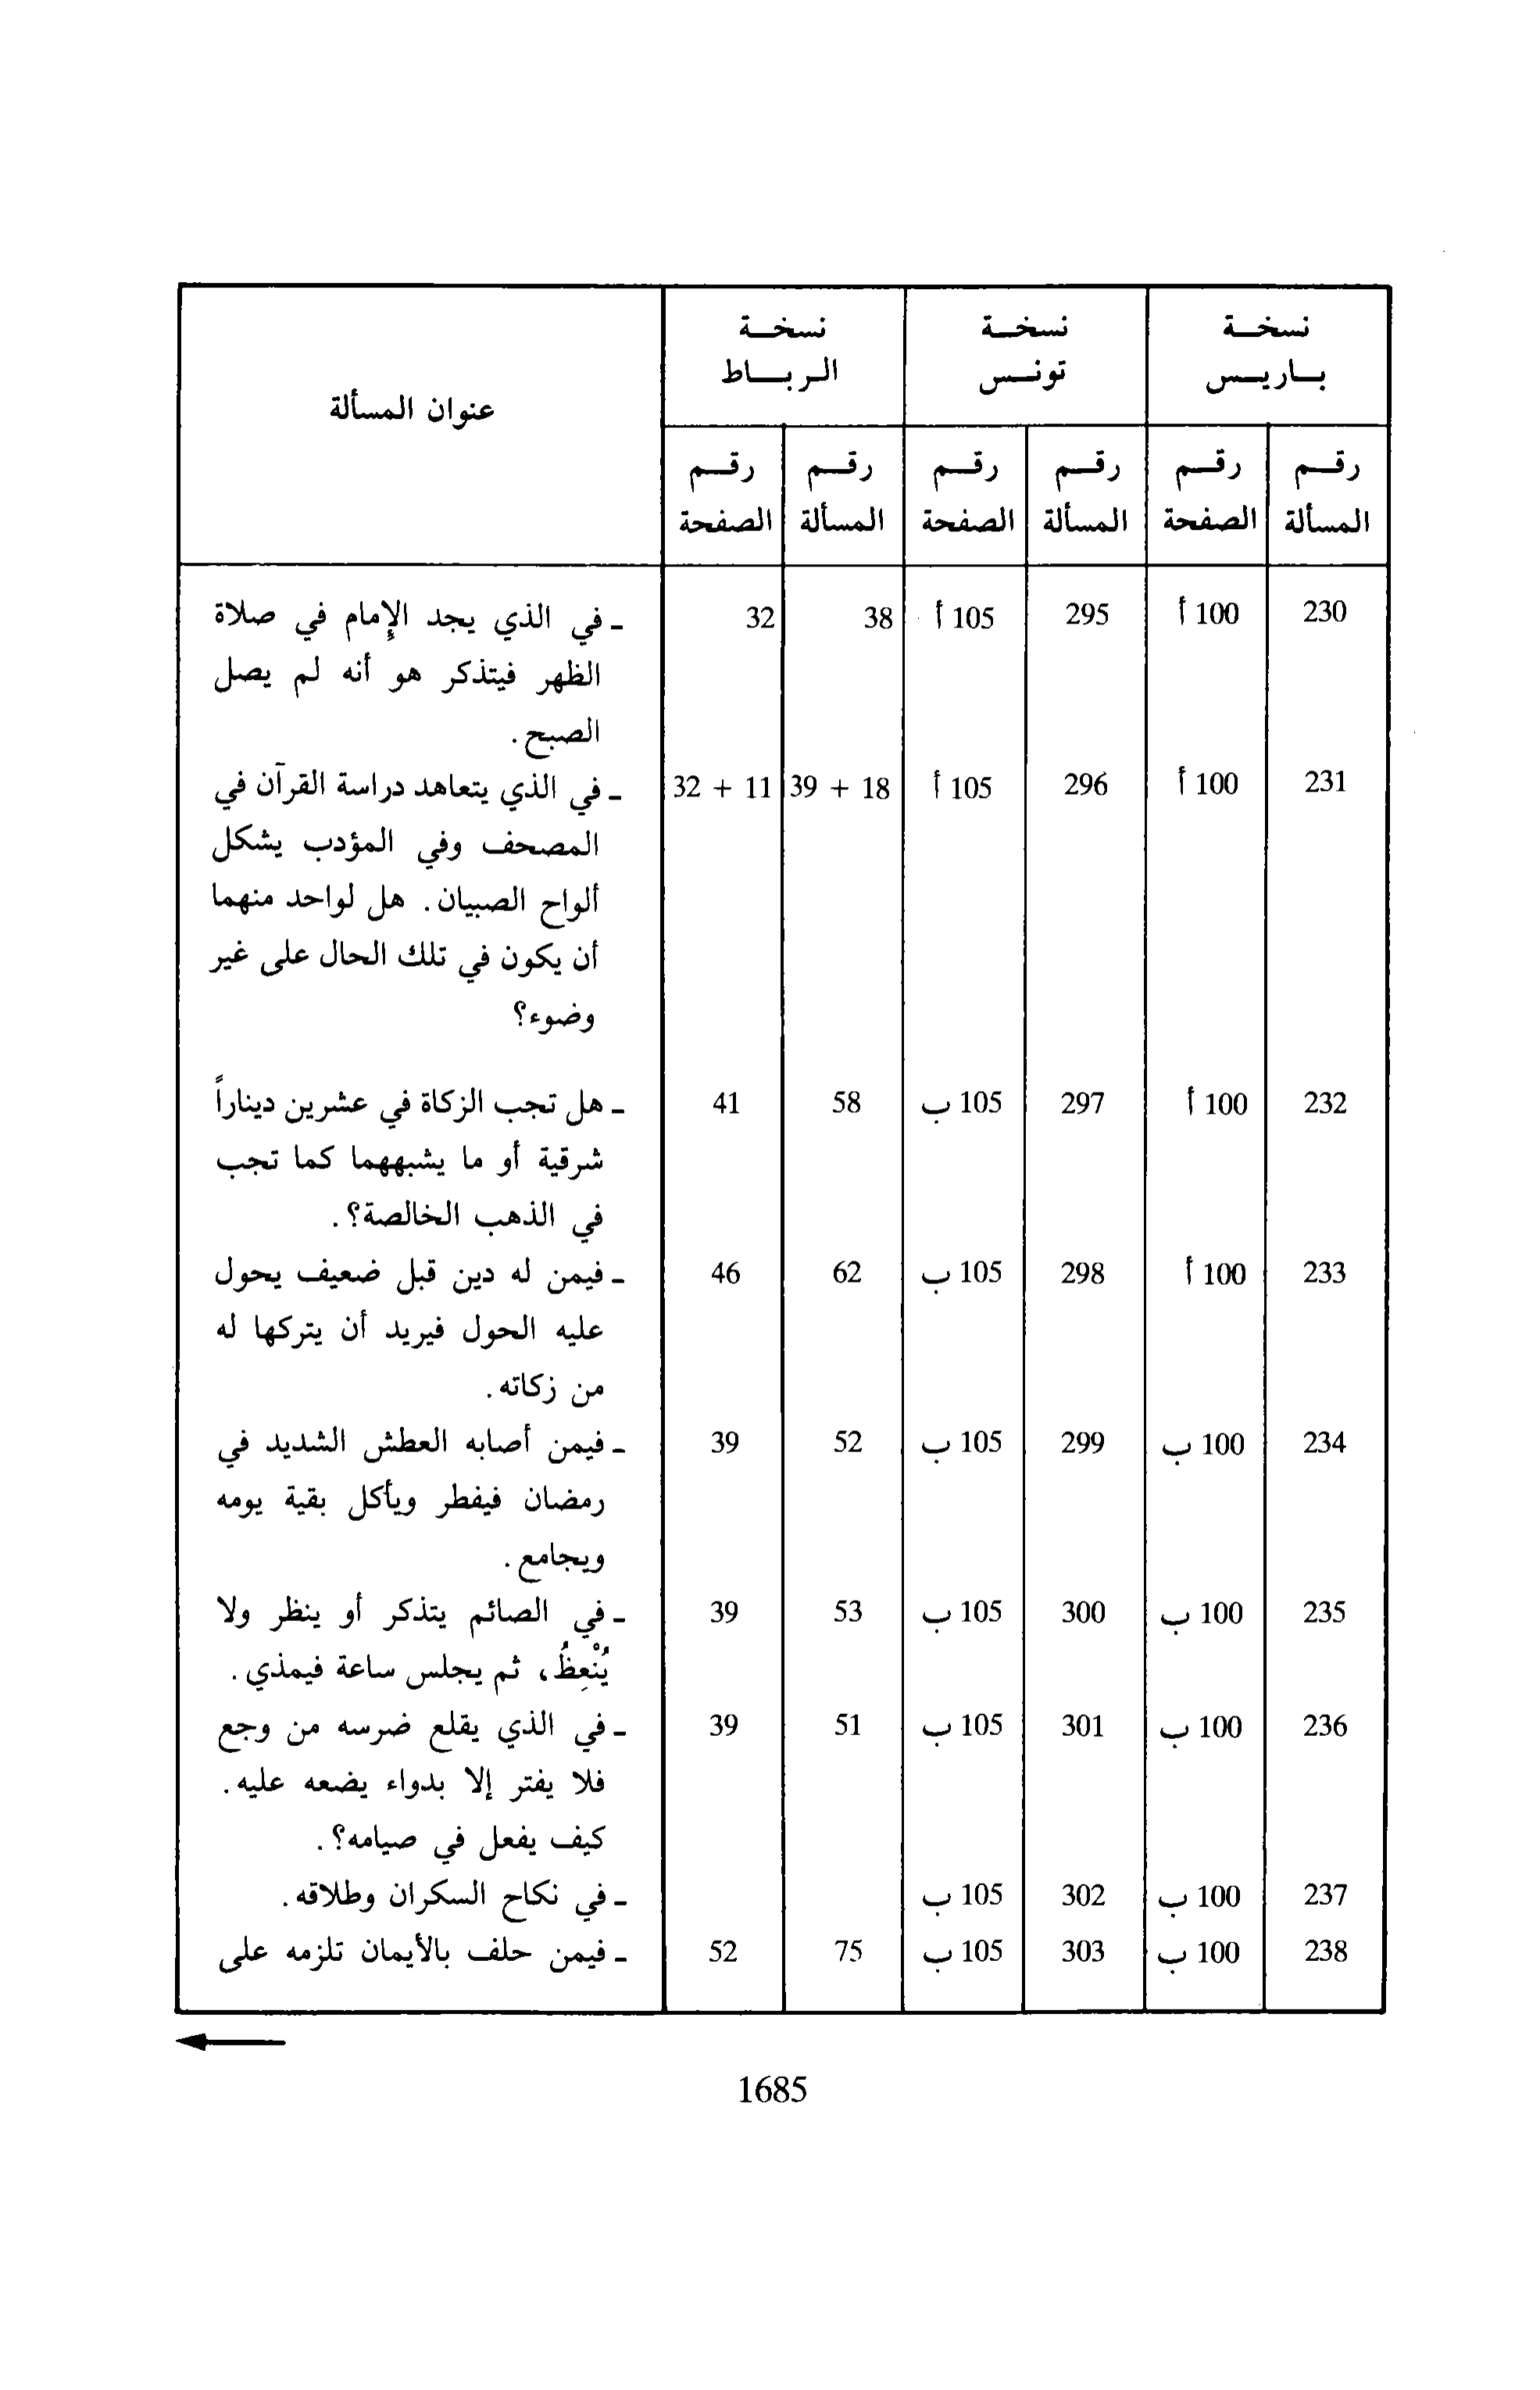 نسخة نسخة نسخة
باريس تونس الرباط
عنوان المسألة
رقم رقم رقم رقم رقم رقم
المسألة الصفحة المسألة الصفحة المسألة الصفحة
230 100 أ 295 105 أ 38 32 - في الذي يجد الإمام في صلاة
الظهر فيتذكر هو أنه لم يصل
الصبح.
231 100 أ 296 105 أ 39 + 18 32 + 11 - في الذي يتعاهد دراسة القرآن في
المصحف وفي المؤدب يشكل
ألواح الصبيان. هل لواحد منهما
أن يكون في تلك الحال على غير
وضوء؟
232 100 أ 297 105 ب 58 41 - هل تجب الزكاة في عشرين ديناراً
شرقية أو ما يشبههما كما تجب
في الذهب الخالصة؟.
233 100 أ 298 105 ب 62 46 - فيمن له دين قبل ضعيف يحول
عليه الحول فيريد أن يتركها له
من زكاته.
234 100 ب 299 105 ب 52 39 - فيمن أصابه العطش الشديد في
رمضان فيفطر ويأكل بقية يومه
ويجامع.
235 100 ب 300 105 ب 53 39 - في الصائم يتذكر أو ينظر ولا
يُنْعِظُ، ثم يجلس ساعة فيمذي.
236 100 ب 301 105 ب 51 39 - في الذي يقلع ضرسه من وجع
فلا يفتر إلا بدواء يضعه عليه.
كيف يفعل في صيامه؟.
237 100 ب 302 105 ب - في نكاح السكران وطلاقه.
238 100 ب 303 105 ب 75 52 - فيمن حلف بالأيمان تلزمه على
1685